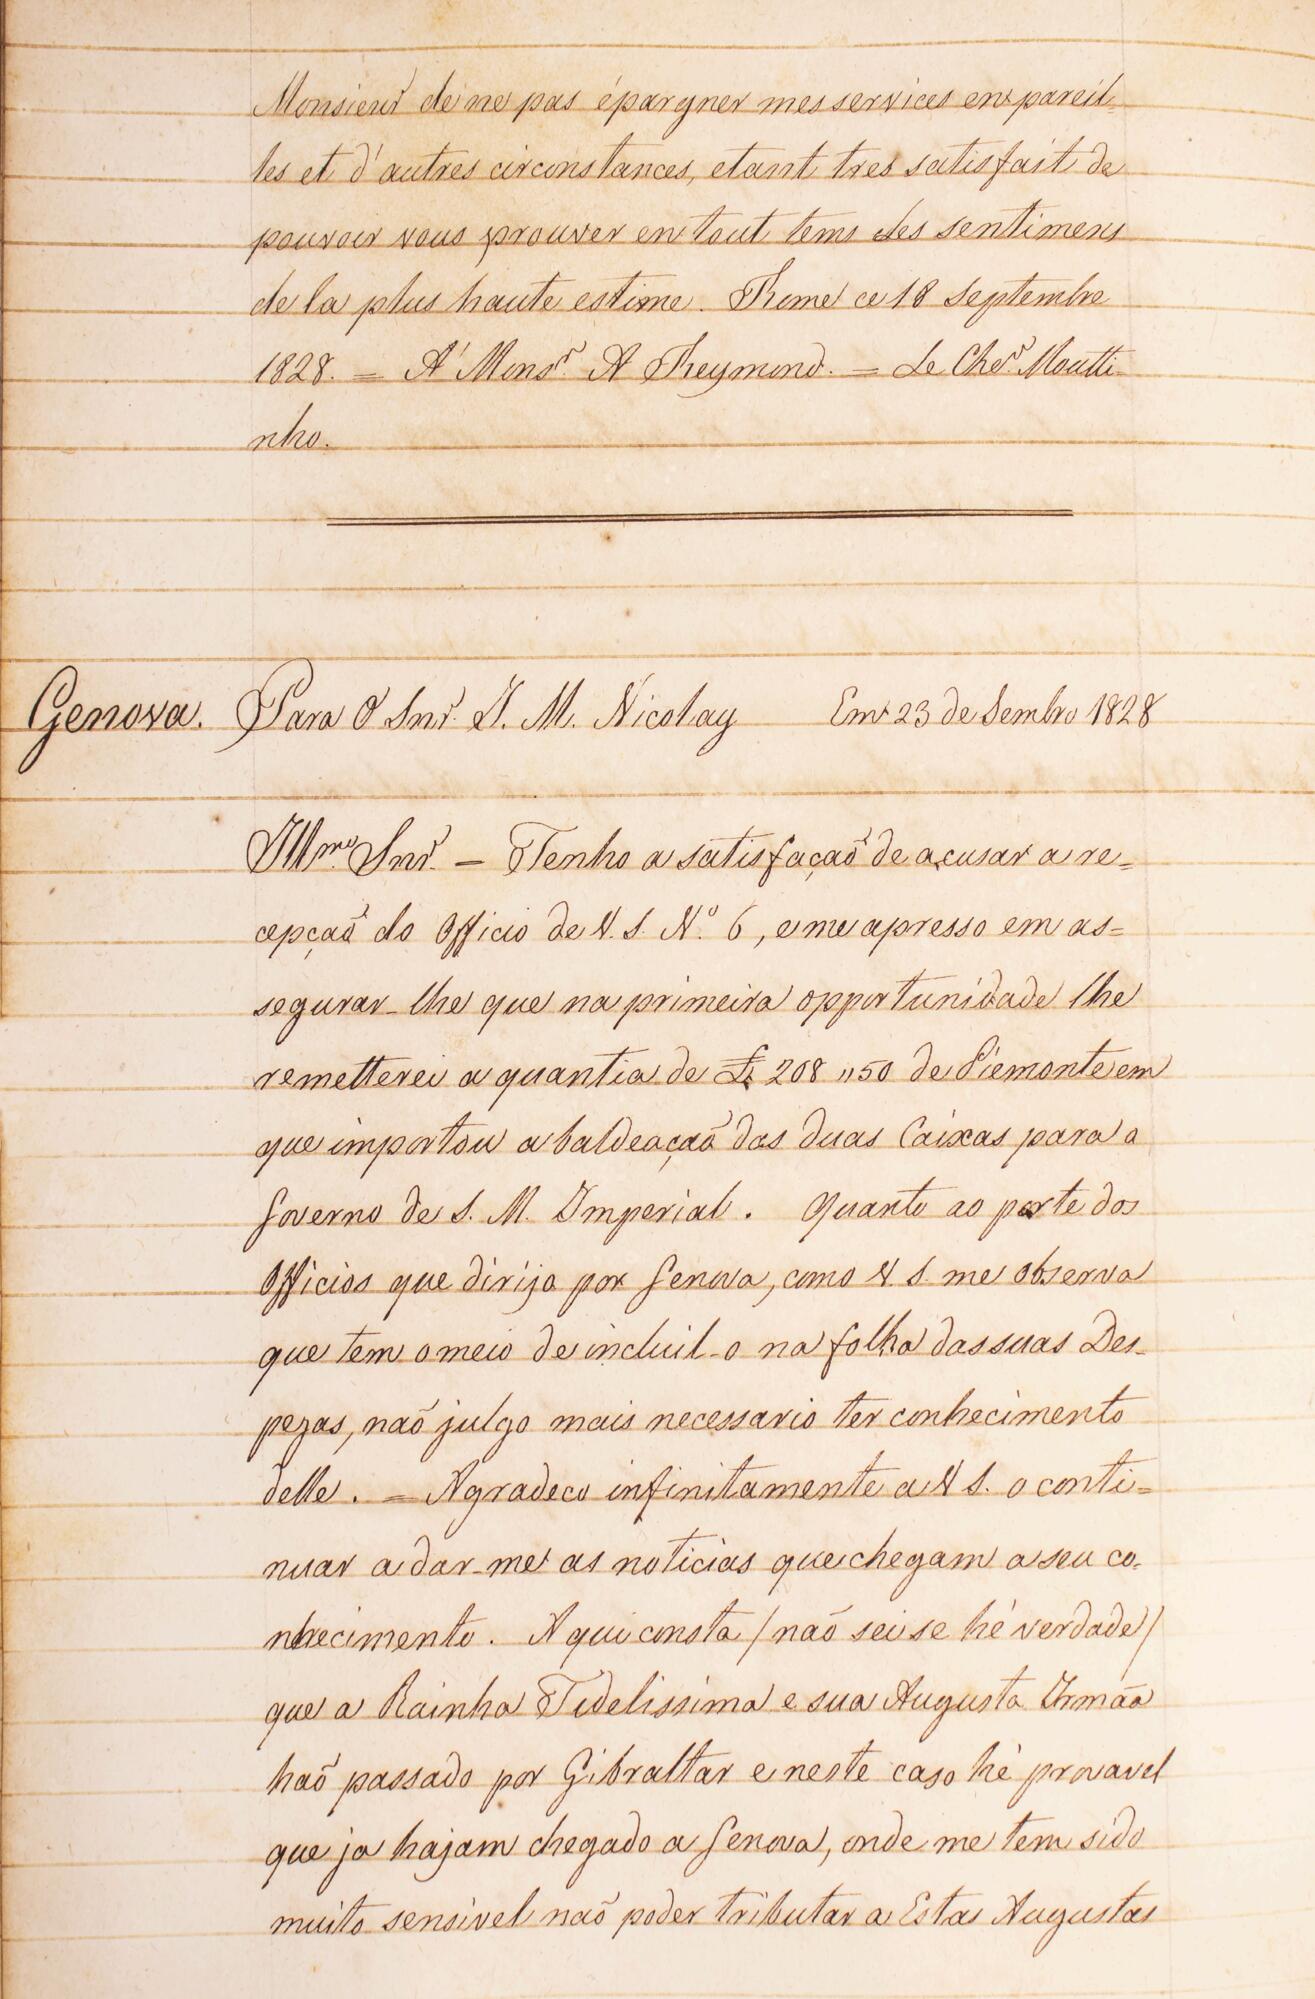 Monsieur de ne pas épargner mes services en pareil-
les et d'autres circonstances, etant tres satisfait de
pouvoir vous prouver en tout tems des sentimens
de la plus haute estime. Rome ce 18 Septembre
1828. = A' Monsr. A Reymond. = Le Cher. Moutti-
nho.
Genova. Para O Snr. J. M. Nicolay Em 23 de Sembro 1828
Illmo. Snr. = Tenho a satisfação de acusar a re=
cepção do Officio de V. S. No. 6, e me apresso em as=
segurar-lhe que na primeira opportunidade lhe
remetterei a quantia de £ 208 ,, 50 de Piemonte em
que importou a baldeação das duas Caixas para o
Governo de S. M. Imperial. Quanto ao porte dos
Officios que dirijo por Genova, como V S. me observa
que tem o meio de incluil-o na folha das suas Des-
pezas, não julgo mais necessario ter conhecimento
delle. = Agradeco infinitamente a V S. o conti=
nuar a dar-me as noticias que chegam a seu co-
nhecimento. Aqui consta / não sei se hé verdade /
que a Rainha Fidelissima e sua Augusta Irmãa
haõ passado por Gibraltar e neste caso hé provavel
que ja hajam chegado a Genova, onde me tem sido
muito sensivel naõ poder tributar a Estas Augustas